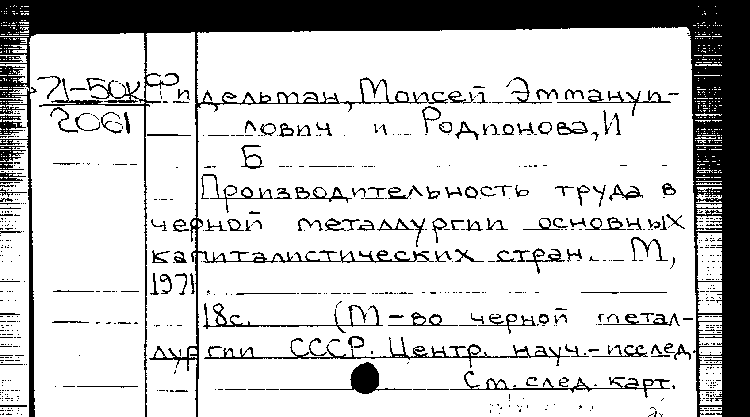 71-50к Фидельман, Моисей Эммануи-
2061 лович и Родионова, И
Б
Производительность труда в
черной металлургии основных
капиталистических стран. М,
1971.
18с. (М-во черной метал-
лургии СССР. Центр. науч.-исслед.
См. след. карт.